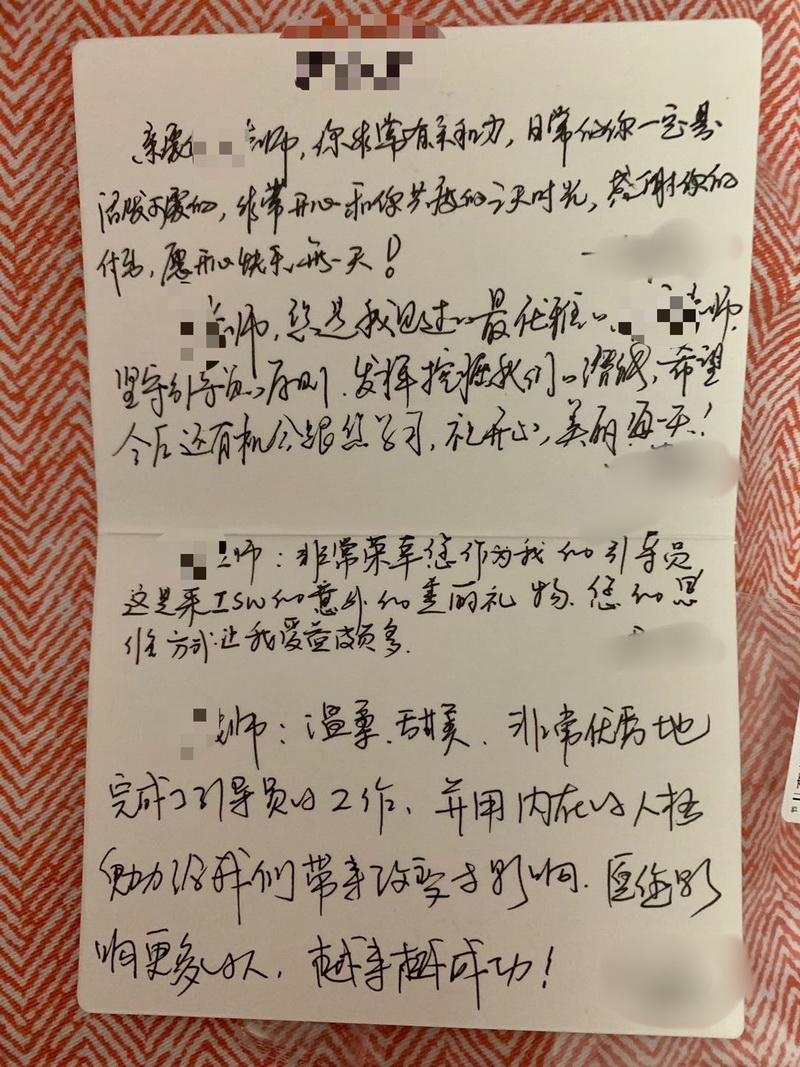 亲爱 师，你非常有亲和力，日常的你一定是
活股可爱的，非常开心和你共度的三天时光，感谢你的
付出，愿开心快乐每一天！
师，您是我见过的最优雅的 师，
坚守引导员的原则，发挥挖掘我们的潜能，希望
今后还有机会跟您学习，祝开心，美丽每一天！
师：非常荣幸您作为我的引导员
这是来ISW的意外的美丽礼物．您的思
维方式让我受益颇多．
师：温柔．甜美．非常优秀地
完成了引导员的工作、并用内在的人格
魅力给我们带来改变与影响． 您影
响更多的人，越来越成功！